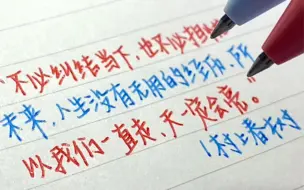 不必纠结当下,也不必担
未来,人生没有无用的经历,所
以我们一直走,天一定会亮。
村上春树